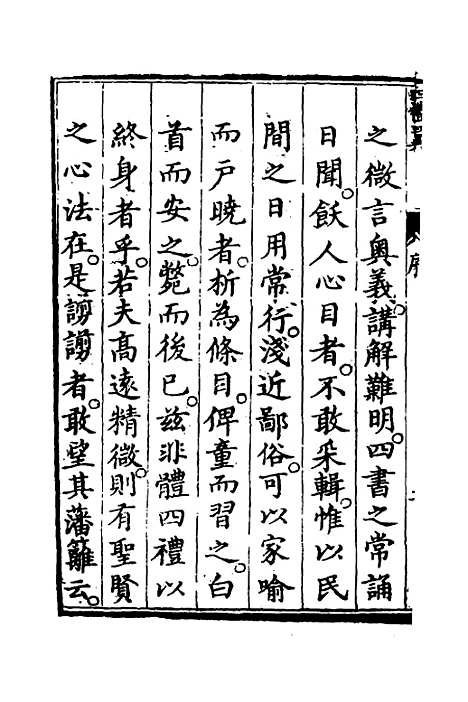 之微言奧義講解難明四書之常誦
日聞飫人心目者不敢采輯惟以民
間之日用常行淺近鄙俗可以家喻
而戶曉者析為條目俾童而習之白
首而安之斃而後已茲非體四禮以
終身者乎若夫高遠精微則有聖賢
之心法在是謭謭者敢望其藩籬云
序